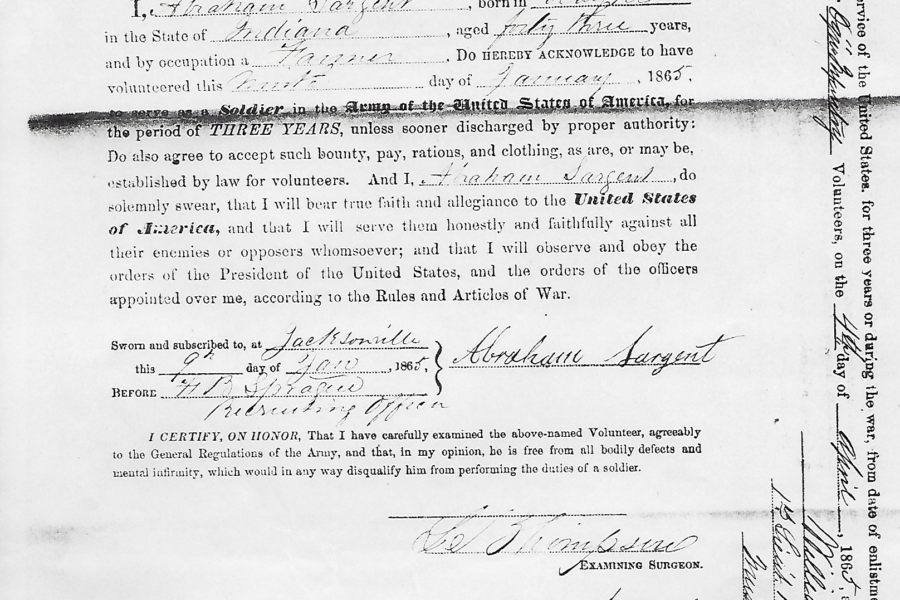 I, Abraham Sargent, born in
in the State of Indiana, aged forty three years,
and by occupation a Farmer. Do HEREBY ACKNOWLEDGE to have
volunteered this day of January, 1865,
to serve as a Soldier in the Army of the United States of America, for
the period of THREE YEARS, unless sooner discharged by proper authority:
Do also agree to accept such bounty, pay, rations, and clothing, as are, or may be,
established by law for volunteers. And I, Abraham Sargent, do
solemnly swear, that I will bear true faith and allegiance to the United States
of America, and that I will serve them honestly and faithfully against all
their enemies or opposers whomsoever; and that I will observe and obey the
orders of the President of the United States, and the orders of the officers
appointed over me, according to the Rules and Articles of War.
Sworn and subscribed to, at Jacksonville
this 9th day of Jan, 1865,
BEFORE H B Sprague
Recruiting Officer
Abraham Sargent
I CERTIFY, ON HONOR, That I have carefully examined the above-named Volunteer, agreeably
to the General Regulations of the Army, and that, in my opinion, he is free from all bodily defects and
mental infirmity, which would in any way disqualify him from performing the duties of a soldier.
Thompson
EXAMINING SURGEON.
service of the United States. for three years or during the war, from date of enlistme
Volunteers, on the 4th day of April, 1865,
1st Lieut